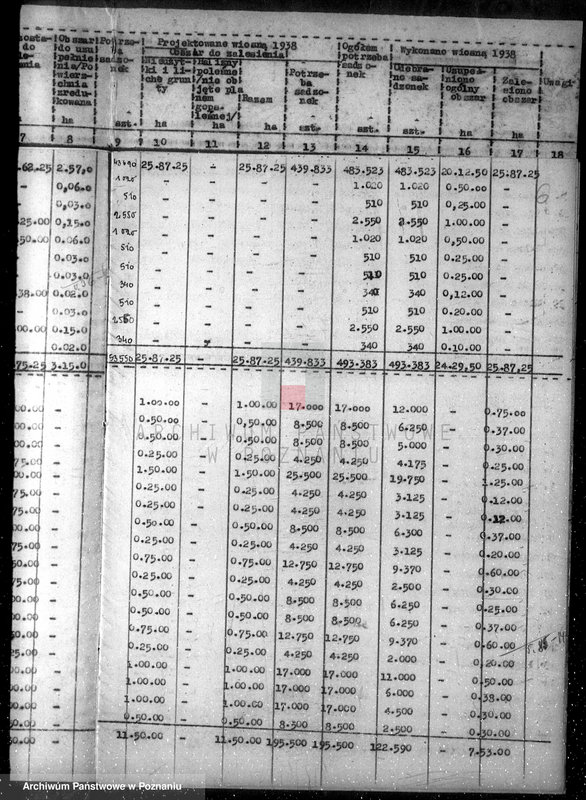 Obszar Potrze- Projektowane wiosną 1938 Ogółem Wykonano wiosną 1938
do do uzu ba Obszar do zalesienia potrzeba
pełnie sadzo- Nieużyt- Halizny Potrze- sadzo- Odebra Uzupeł- Zale- Uwagi
nia/Po nek ki i li- poleśne ba nek no sa- niono siono
wierz- che grun /nie ob sadzo- dzonek ogólny obszar
chnia ty jęte pla Razem nek obszar
zredu nem
kowana/ gosp.
leśnej/
ha szt. ha ha ha szt. szt. szt. ha ha
7 8 9 10 11 12 13 14 15 16 17 18
.62.25 2.57,0 43490 25.87.25 - 25.87.25 439.833 483.523 483.523 20.12.50 25.87.25
- 0,06.0 1020 - - - - 1.020 1.020 0.50.00 -
- 0,03.0 510 - - - - 510 510 0,25.00 -
.25.00 0,15.0 2.550 - - - - 2.550 2.550 1.00.00 -
.50.00 0.06.0 1020 - - - - 1.020 1.020 0,50.00 -
- 0.03.0 510 - - - - 510 510 0.25.00 -
- 0.03.0 510 - - - - 510 510 0.25.00 -
.38.00 0.02.0 340 - - - - 340 340 0,12.00 -
- 0.03.0 510 - - - - 510 510 0.20.00 -
.00.00 0.15.0 2550 - - - - 2.550 2.550 1.00.00 -
- 0.02.0 340 - - - - 340 340 0.10.00 -
.75.25 3.15.0 53550 25.87.25 - 25.87.25 439.833 493.383 493.383 24.29,50 25.87,25
00.00 - 1.00.00 1.00.00 17.000 17.000 12.000 - 0.75.00
0.50.00 0,50.00 8.500 8.500 6.250 - 0.37.00
0.50.00 0.50.00 8.500 8.500 5.000 - 0.30.00
0.25.00 0.25.00 4.250 4.250 4.175 - 0.25.00
1.50.00 1.50.00 25.500 25.500 19.750 - 1.25.00
0.25.00 0.25.00 4.250 4.250 3.125 - 0.12.00
0.25.00 0.25.00 4.250 4.250 3.125 - 0.12.00
0.50.00 0.50.00 8.500 8.500 6.300 - 0.37.00
0.25.00 0.25.00 4.250 4.250 3.125 - 0.20.00
0.75.00 0.75.00 12.750 12.750 9.370 - 0.60.00
0.25.00 0.25.00 4.250 4.250 2.500 - 0.30.00
0.50.00 0.50.00 8.500 8.500 6.250 - 0.25.00
0.50.00 0.50.00 8.500 8.500 6.250 - 0.37.00
0.75.00 0.75.00 12.750 12.750 9.370 - 0.60.00
0.25.00 0.25.00 4.250 4.250 2.000 - 0.20.00
1.00.00 1.00.00 17.000 17.000 11.000 - 0.50.00
1.00.00 1.00.00 17.000 17.000 6.000 - 0.38.00
1.00.00 1.00.00 17.000 17.000 4.500 - 0.30.00
0.50.00 0.50.00 8.500 8.500 2.500 - 0.30.00
11.50.00 - 11.50.00 195.500 195.500 122.590 - 7.53.00
ARCHIWUM PAŃSTWOWE
W POZNANIU
Archiwum Państwowe w Poznaniu